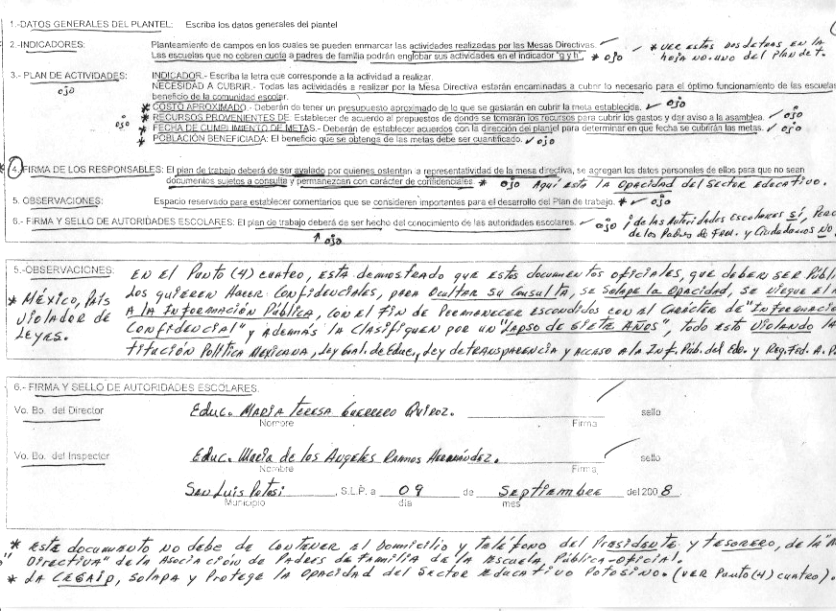 1.-DATOS GENERALES DEL PLANTEL: Escriba los datos generales del plantel
2.-INDICADORES: Planteamiento de campos en los cuales se pueden enmarcar las actividades realizadas por las Mesas Directivas.
Las escuelas que no cobren cuota a padres de familia podrán englobar sus actividades en el indicador "g y h". * ojo
* VER ESTOS DOS LETRAS EN LA
HOJA NO. UNO DEL PLANDET.
3.- PLAN DE ACTIVIDADES: INDICADOR.- Escriba la letra que corresponde a la actividad a realizar.
ojo
NECESIDAD A CUBRIR.- Todas las actividades a realizar por la Mesa Directiva estarán encaminadas a cubrir lo necesario para el óptimo funcionamiento de las escuelas
beneficio de la comunidad escolar.
* COSTO APROXIMADO.- Deberán de tener un presupuesto aproximado de lo que se gastarán en cubrir la meta establecida. ojo
ojo * RECURSOS PROVENIENTES DE: Establecer de acuerdo al prepuestos de donde se tomarán los recursos para cubrir los gastos y dar aviso a la asamblea. ojo
* FECHA DE CUMPLIMIENTO DE METAS.- Deberán de establecer acuerdos con la dirección del plantel para determinar en que fecha se cubrirán las metas. ojo
* POBLACIÓN BENEFICIADA: El beneficio que se obtenga de las metas debe ser cuantificado. ojo
* 4. FIRMA DE LOS RESPONSABLES: El plan de trabajo deberá de ser avalado por quienes ostentan a representatividad de la mesa directiva, se agregan los datos personales de ellos para que no sean
documentos sujetos a consulta y permanezcan con carácter de confidenciales. * ojo Aquí esta la Opacidad del Sector Educativo.
5. OBSERVACIONES: Espacio reservado para establecer comentarios que se consideren importantes para el desarrollo del Plan de trabajo. * ojo
6.- FIRMA Y SELLO DE AUTORIDADES ESCOLARES: El plan de trabajo deberá de ser hecho del conocimiento de las autoridades escolares. ojo ¡de las Autoridades Escolares SÍ, PERO
de los Padres de Fam. y Ciudadanos NO
ojo
5.-OBSERVACIONES: EN El Punto (4) cuatro, está demostrado que estos documentos oficiales, que deben SER Públi
los quieren Hacer Confidenciales, para Ocultar su Consulta, se Solapa la Opacidad, se niegue el
* México, País
Violador de
Leyes.
A la Información Pública, con el fin de Permanecer escondidos con el Carácter de "Informacio
Confidencial" y además la Clasifiquen por un "Lapso de SIETE AÑOS", todo esto Violando la
titución Política Mexicana, Ley Gral. de Educ., Ley de transparencia y acceso a la Inf. Pub. del Edo. y Reg. Fed. A. P.
6.- FIRMA Y SELLO DE AUTORIDADES ESCOLARES.
Vo. Bo. del Director Educ. MARÍA TERESA GUERRERO QUIROZ. sello
Nombre Firma
Vo. Bo. del Inspector Educ. María de los Angeles Ramos Hernández. sello
Nombre Firma
San Luis Potosi , S.L.P. a 09 de Septiembre del 2008.
Municipio día mes
* este documento no debe de contener el Domicilio y teléfono del Presidente y tesorero, de la
Directiva" de la Asociación de Padres de Familia de la Escuela, Pública-Oficial.
* LA CEGAIP, solapa y Protege la Opacidad del Sector educativo Potosino. (VER Punto (4) cuatro).